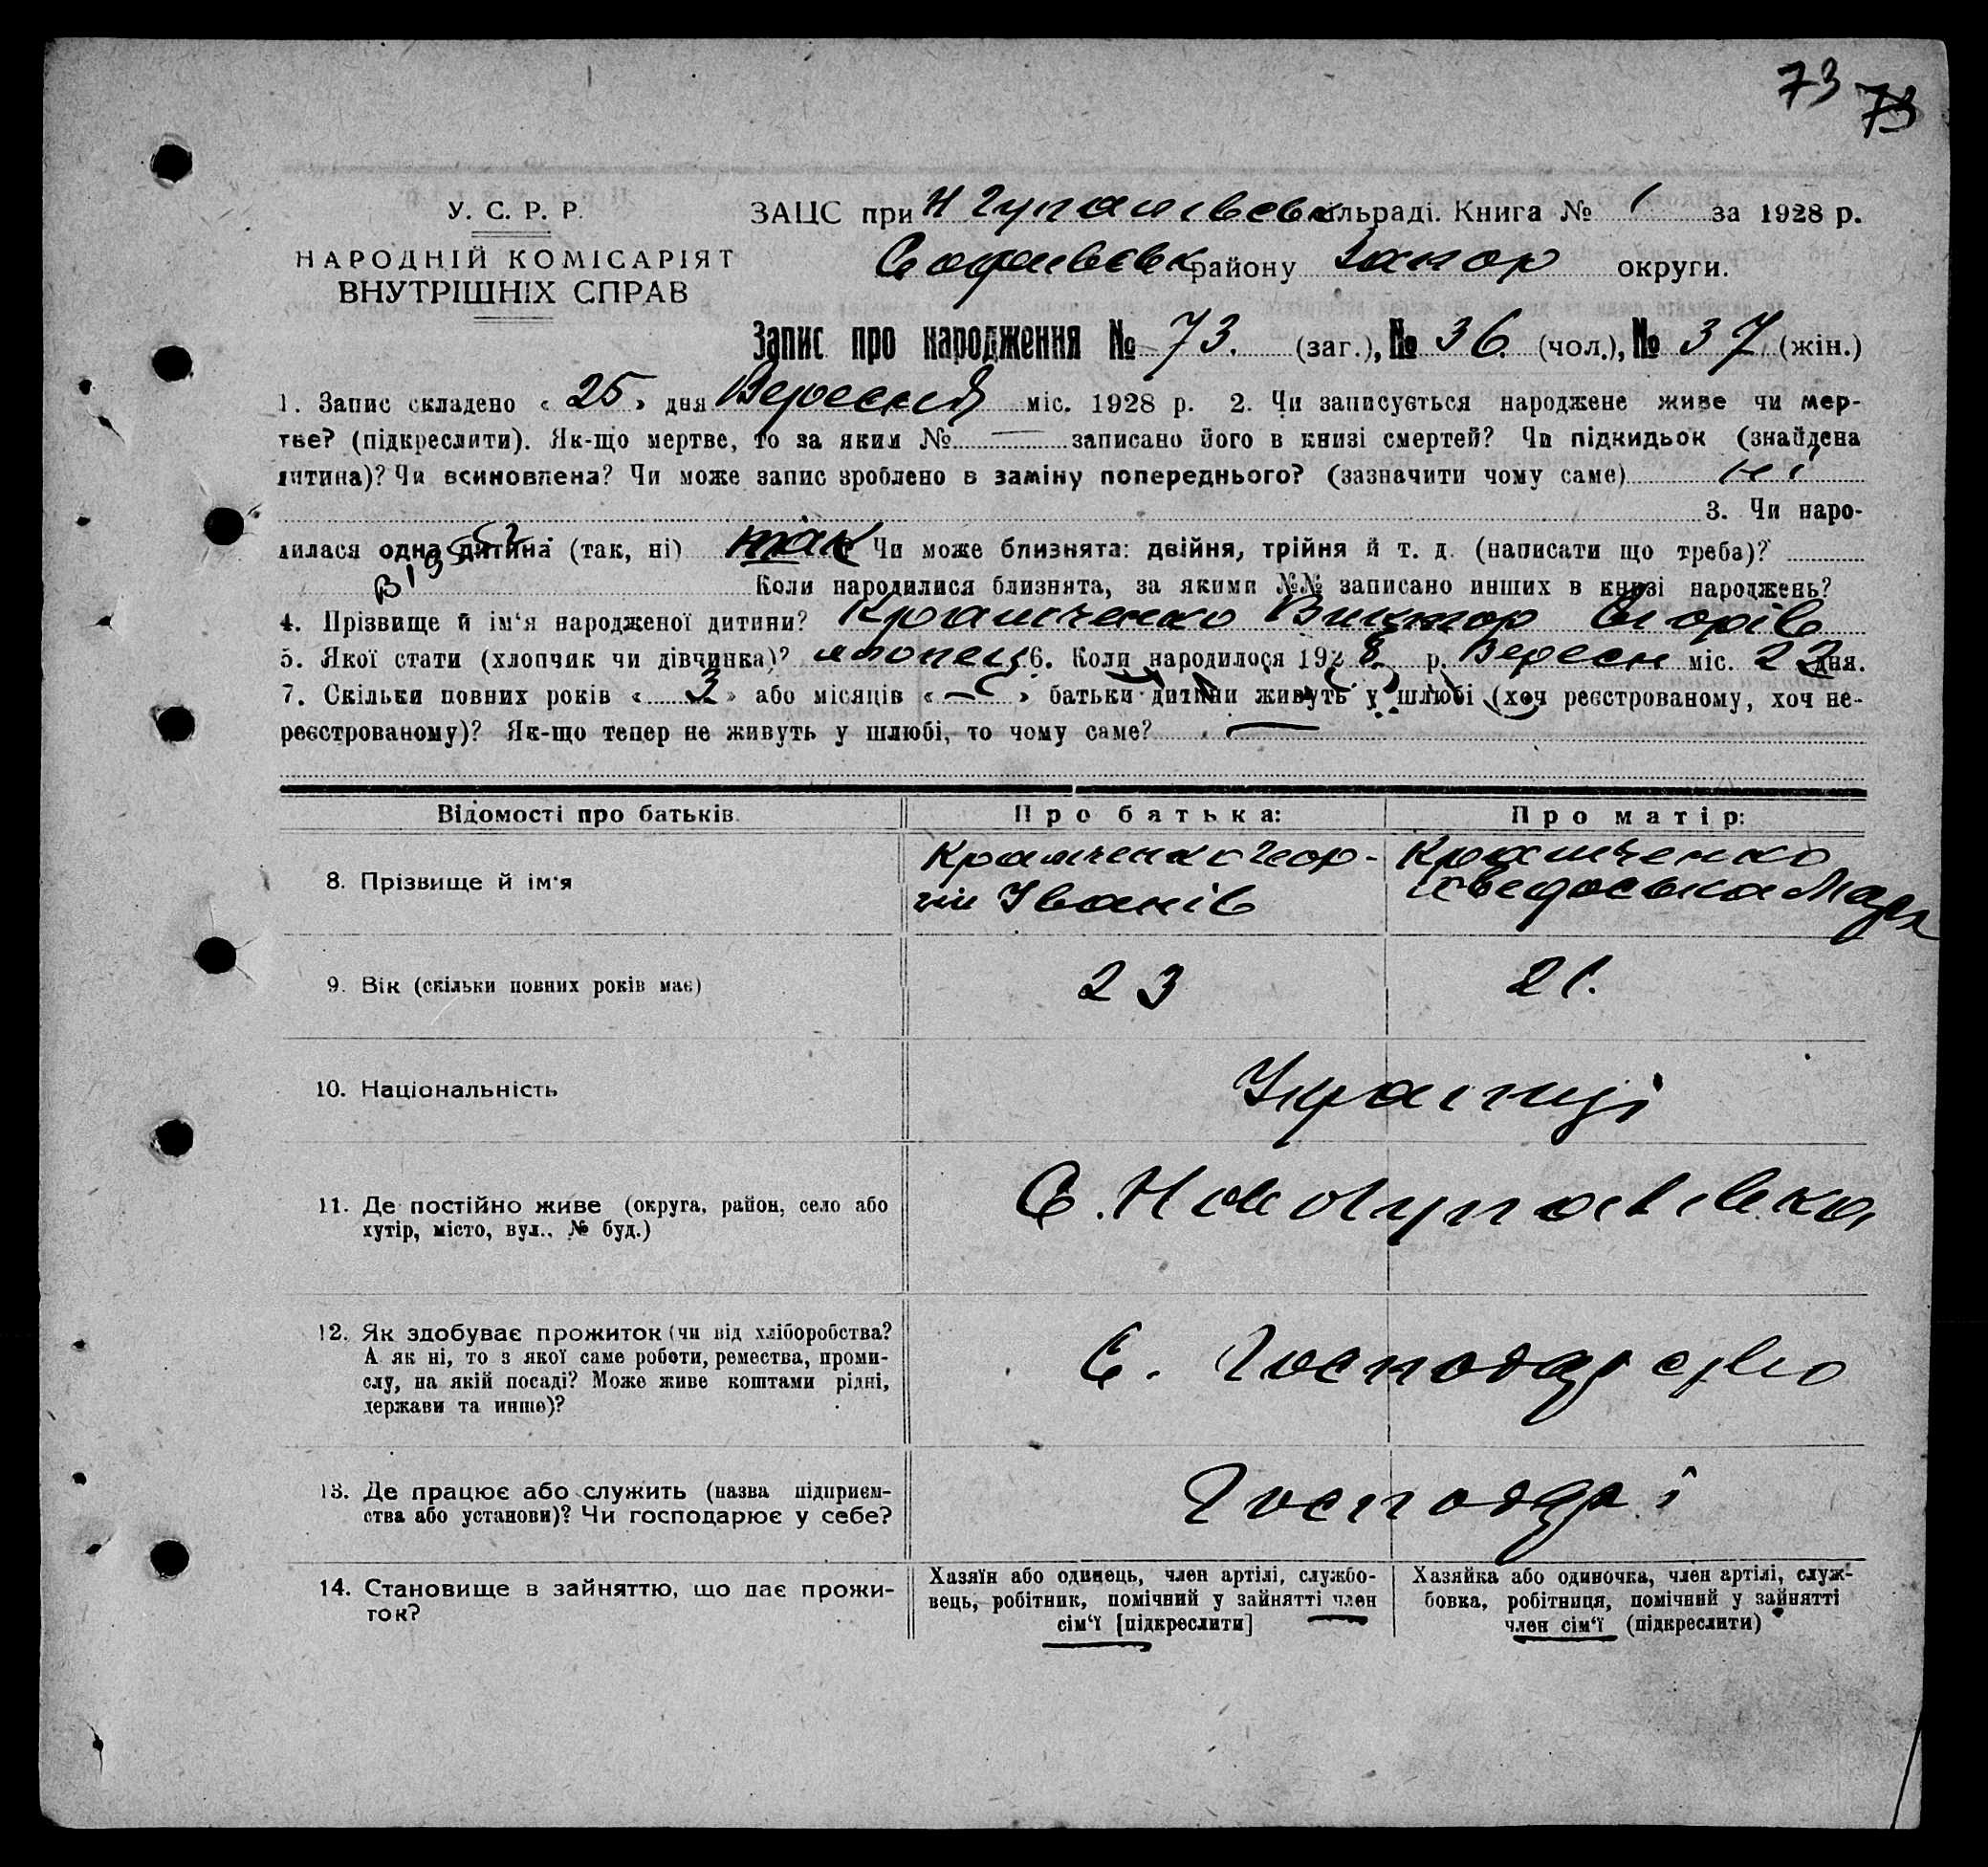 73 73
У. С. Р. Р.
НАРОДНІЙ КОМІСАРІЯТ
ВНУТРІШНІХ СПРАВ
ЗАЦС при Н Гупалівськ сільраді. Книга № 1 за 1928 р.
Софиевськ району Запор округи.
Запис про народження № 73. (заг.), № 36. (чол.), № 37 (жін.)
1. Запис складено « 25 » дня Вересня міс. 1928 р. 2. Чи записується народжене живе чи мер-
тве? (підкреслити). Як-що мертве, то за яким № — записано його в книзі смертей? Чи підкидьок (знайдена
дитина)? Чи всиновлена? Чи може запис зроблено в заміну попереднього? (зазначити чому саме) ні
3. Чи наро-
дилася одна дитина (так, ні) так Чи може близнята: двійня, трійня й т. д. (написати що треба)?
Коли народилися близнята, за якими №№ записано инших в книзі народжень?
4. Прізвище й ім‘я народженої дитини? Крамченко Виктор
5. Якої стати (хлопчик чи дівчинка)? хлопець 6. Коли народилося 1928 р. Вересн міс. 22 дня.
7. Скільки повних років « 3 » або місяців « — » батьки дитини живуть у шлюбі (хоч реєстрованому, хоч не-
реєстрованому)? Як-що тепер не живуть у шлюбі, то чому саме? —
Відомості про батьків. Про батька: Про матір:
8. Прізвище й ім‘я
Крамченко Геор-
гій Іванів
Крамченко
9. Вік (скільки повних років має) 23 21.
10. Національність Украінці
11. Де постійно живе (округа, район, село або
хутір, місто, вул., № буд.)
С. Новогупалівка
12. Як здобуває прожиток (чи від хліборобства?
А як ні, то з якої саме роботи, ремества, проми-
слу, на якій посаді? Може живе коштами рідні,
держави та инше)?
С. Господарство
13. Де працює або служить (назва підприєм-
ства або установи)? Чи господарює у себе?
Господарі
14. Становище в зайняттю, що дає прожи-
ток?
Хазяїн або одинець, член артілі, службо-
вець, робітник, помічний у зайнятті член
сім‘ї [підкреслити]
Хазяйка або одиночка, член артілі, служ-
бовка, робітниця, помічний у зайнятті
член сім‘ї (підкреслити)